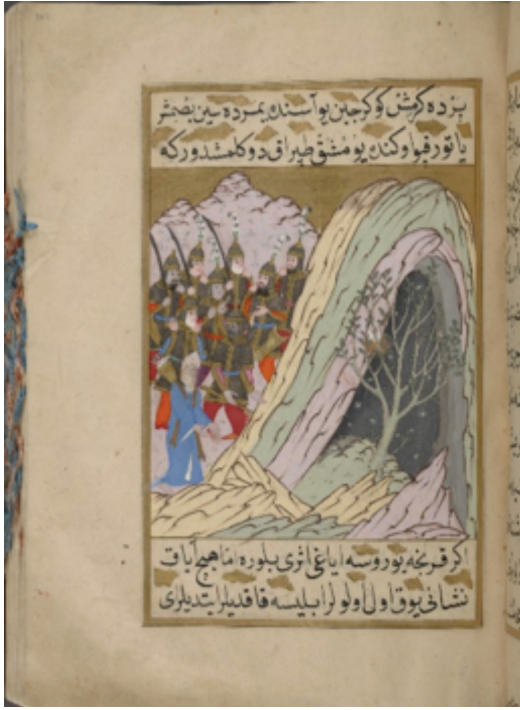 پرده کرمش کوکرجین یوآسنده یمرده سین بصمش
یاتور قپو اوکنده یومشق طپراق دوکلمشدور که
اکر قرنجه یوروسه ایاغی اثری بلوره اما هیچ آیاق
نشانی یوق اول اولولر ابلیسه قاقدیلر ایتدیلر ای